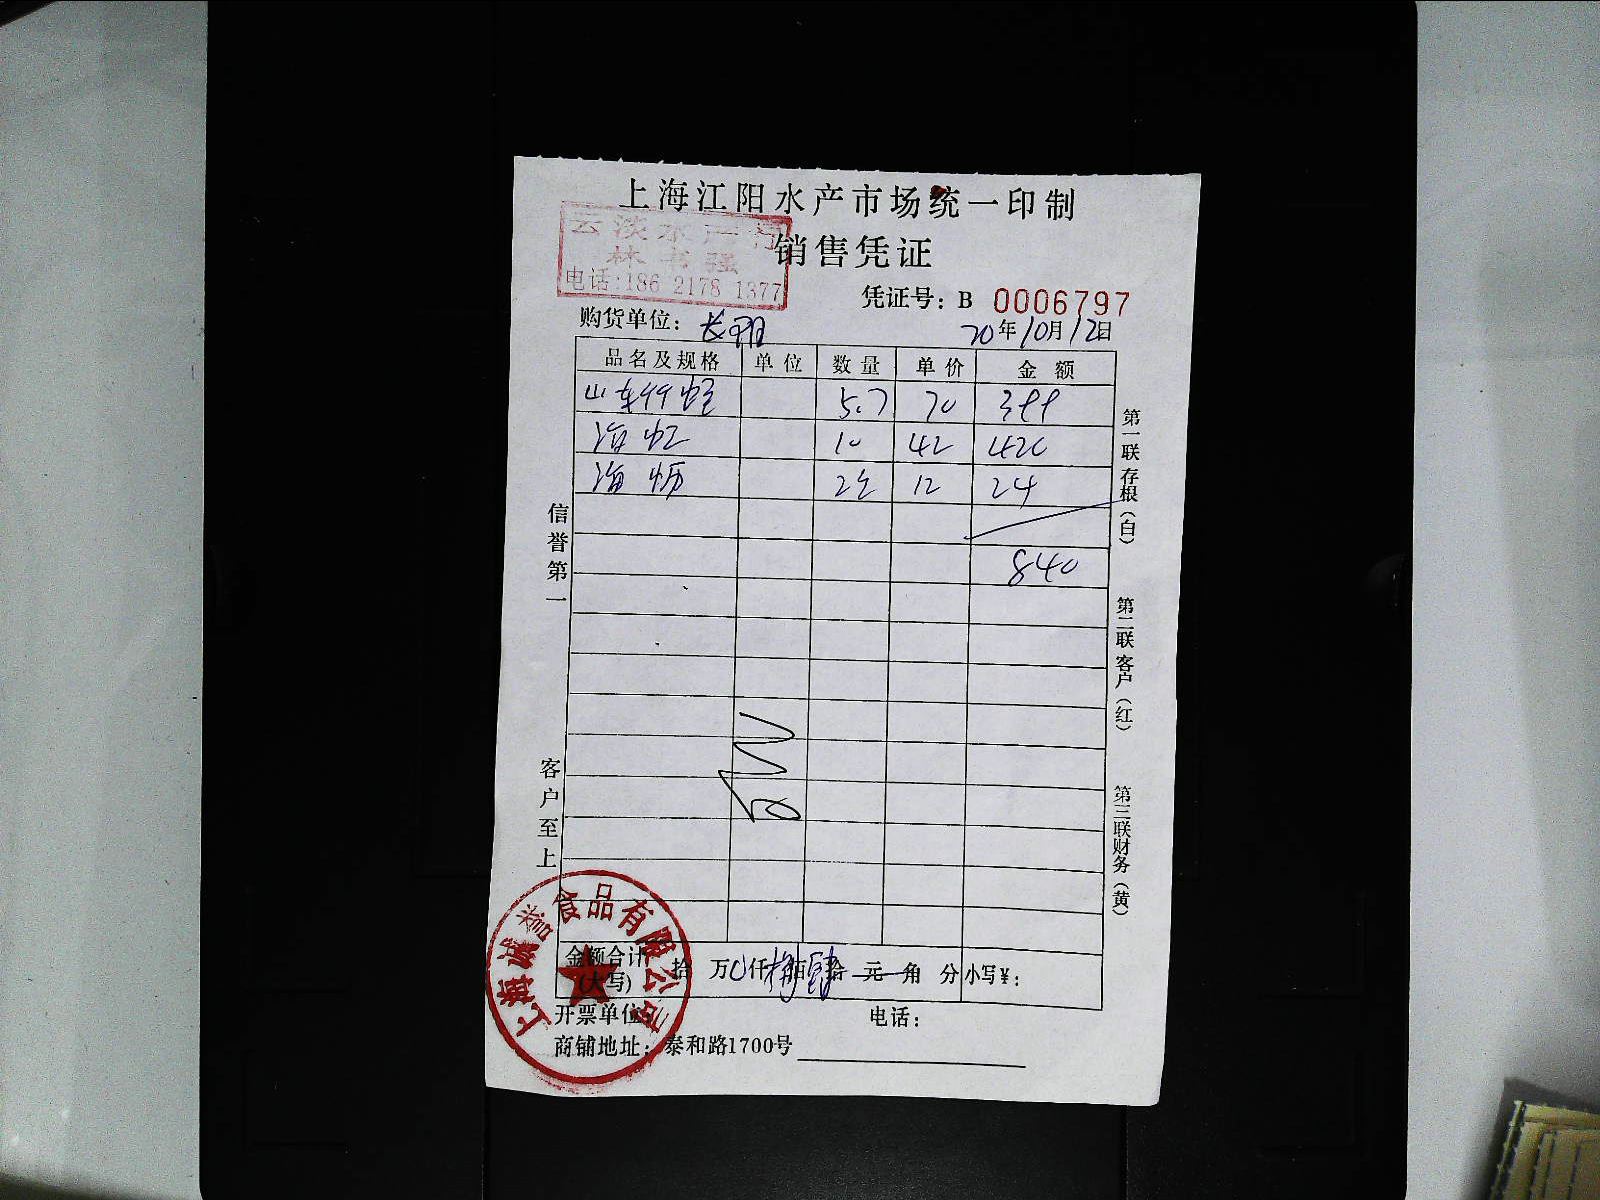 上海江阳水产市场统一印制
云淡水产行
林书强
电话:186 2178 1377
销售凭证
凭证号：B 0006797
购货单位：
20年10月12日
品名及规格 单位 数量 单价 金额
山东竹蛏 5.7 70 399
海虹 10 42 420
海蛎 2 12 24
840
信誉第一
客户至上
第一联存根（白）
第二联客户（红）
第三联财务（黄）
金额合计(大写) 拾 万 仟捌佰肆拾 元 角 分 小写¥：
上海诚誉食品有限公司
开票单位： 电话：
商铺地址：泰和路1700号